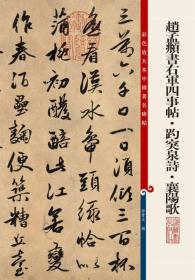 彩色放大本中國著名碑帖
趙孟頫書右軍四事帖·趵突泉詩·襄陽歌
六千日一日須傾三百杯
看漢水鴨頭綠恰似
蒲萄初醱醅此江若變
作春酒壘麴便築糟丘